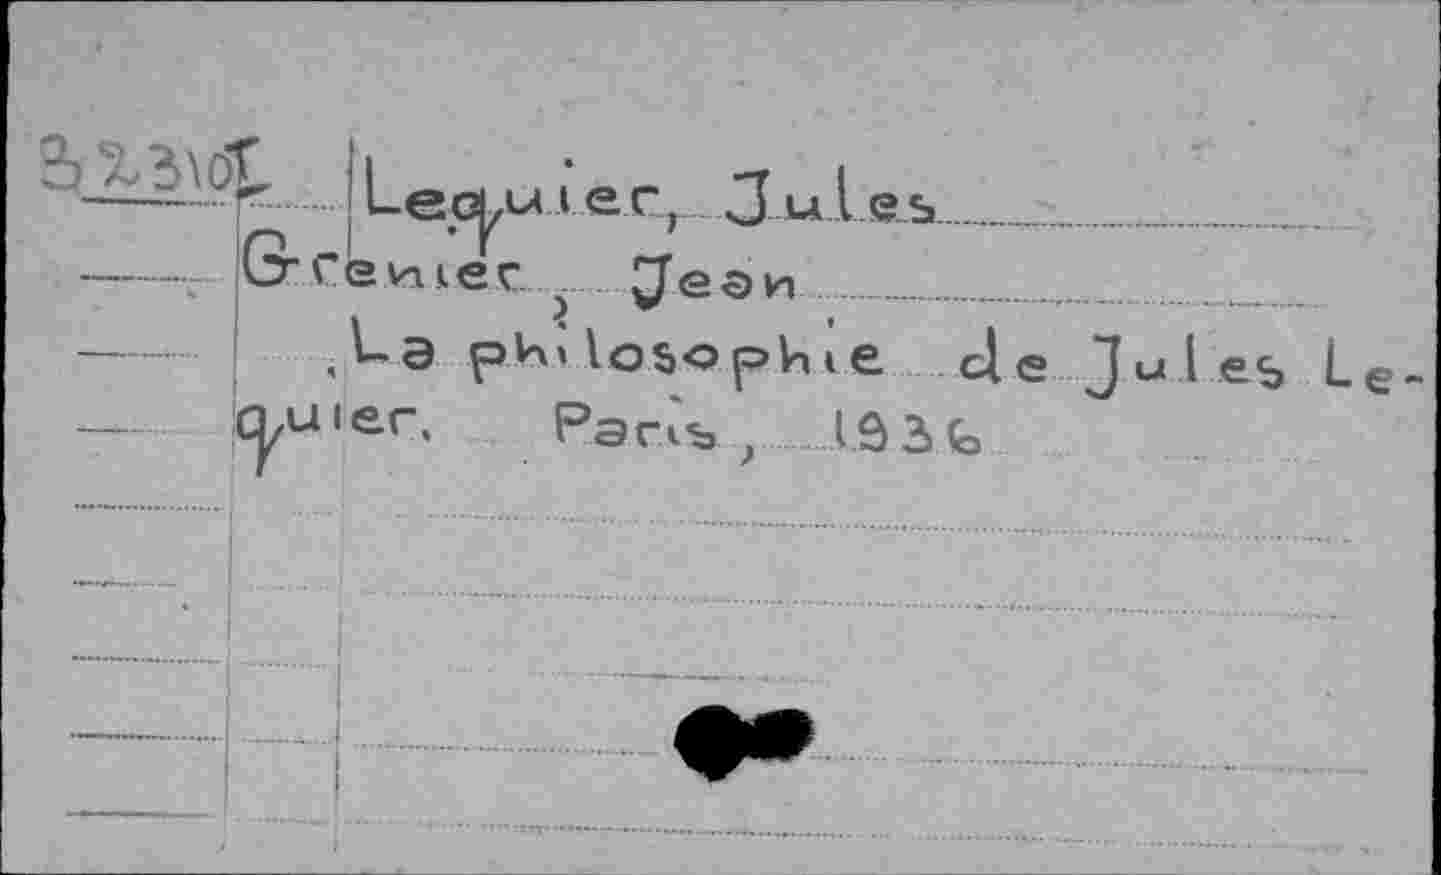 Lequier, Jules
Grenier, Jean
La philosophie de Jules Le-
quier. Paris, 1936